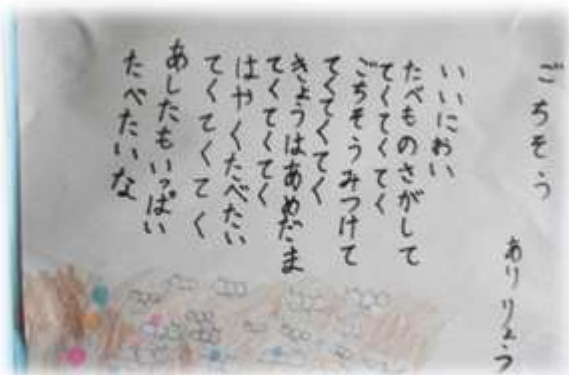 ごちそう
ありりょう
いいにおい
たべものさがして
てくてくてく
ごちそうみつけて
てくてくてく
きょうはあめだま
てくてくてく
はやくたべたい
てくてくてく
あしたもいっぱい
たべたいな